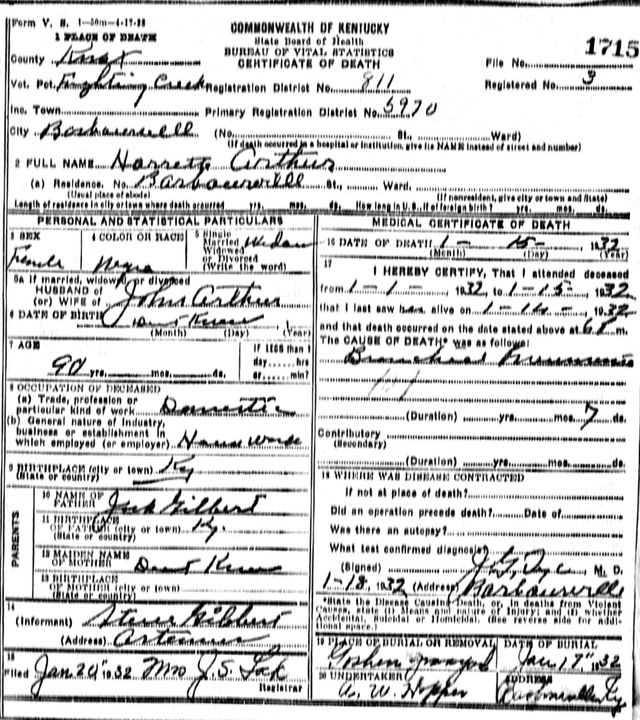 Form V. S. 1-50m-4-17-28
COMMONWEALTH OF KENTUCKY
State Board of Health
BUREAU OF VITAL STATISTICS
CERTIFICATE OF DEATH
1 PLACE OF DEATH
File No. 1715
County Knox
Vot. Pct. Fighting Creek Registration District No. 811 Registered No. 3
Inc. Town Primary Registration District No. 5970
City Barbourville (No. St., Ward)
(If death occurred in a hospital or institution, give its NAME instead of street and number)
2 FULL NAME Harrett Arthur
(a) Residence. No. Barbourville St., Ward.
(Usual place of abode) (If nonresident, give city or town and State)
Length of residence in city or where death occurred yrs. mos. ds. How long in U. S., if of foreign birth? yrs. mos. ds.
PERSONAL AND STATISTICAL PARTICULARS
3 SEX
Female
4 COLOR OR RACE
Negro
5 Single
Married
Widowed
or Divorced
(Write the word)
Widow
5a If married, widowed or divorced
HUSBAND of
(or) WIFE of John Arthur
6 DATE OF BIRTH Dont Know
(Month) (Day) (Year)
7 AGE
90 yrs. mos. ds.
If LESS than 1
day, hrs
or min?
8 OCCUPATION OF DECEASED
(a) Trade, profession or
particular kind of work Domestic
(b) General nature of industry,
business or establishment in
which employed (or employer) House work
9 BIRTHPLACE (city or town) Ky
(State or country)
PARENTS
10 NAME OF
FATHER Jack Gilbert
11 BIRTHPLACE
OF FATHER (city or town) Ky.
(State or country)
12 MAIDEN NAME
OF MOTHER Dont Know
13 BIRTHPLACE
OF MOTHER (city or town)
(State or country)
14
(Informant) Steve Gilbert
(Address) Artemus
15
Filed Jan 20" 1932 Mrs J. S. Lock
Registrar
MEDICAL CERTIFICATE OF DEATH
16 DATE OF DEATH 1- 15- 1932
(Month) (Day) (Year)
17
I HEREBY CERTIFY, That I attended deceased
from 1-1- 1932, to 1-15-, 1932
that I last saw her alive on 1-14-, 1932
and that death occurred on the date stated above at 6 m.
The CAUSE OF DEATH* was as follows:
Bronchial Pneumonia
(Duration) yrs. mos. 7 ds.
Contributory
(Secondary)
(Duration) yrs. mos. ds.
18 WHERE WAS DISEASE CONTRACTED
If not at place of death?
Did an operation precede death? Date of
Was there an autopsy?
What test confirmed diagnosis?
(Signed) M. D.
1-18, 1932 (Address) Barbourville
*State the Disease Causing Death, or, in deaths from Violent
Causes, state (1) Means and Nature of Injury; and (2) whether
Accidental, Suicidal or Homicidal. (See reverse side for addi-
tional space.)
19 PLACE OF BURIAL OR REMOVAL
Goshen graveyard
DATE OF BURIAL
Jan 17" 1932
20 UNDERTAKER
A. W. Hopper
ADDRESS
Barbourville Ky